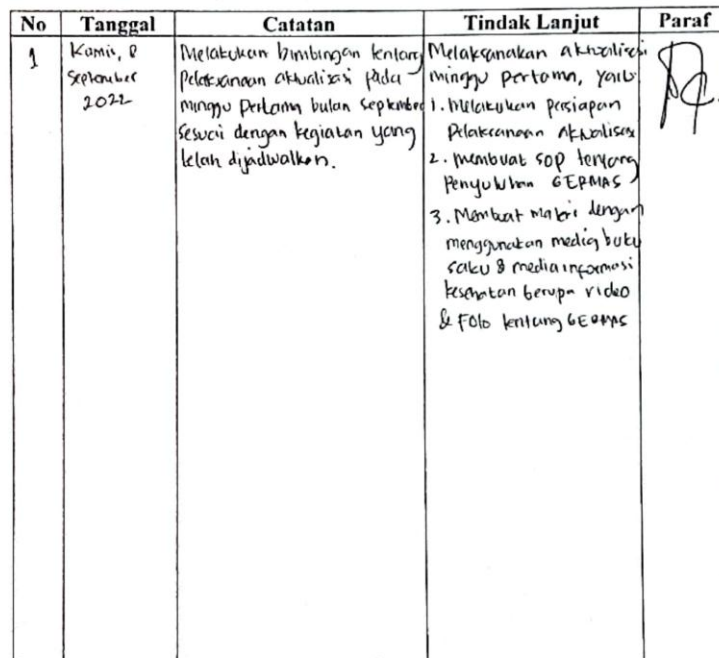 No Tanggal Catatan Tindak Lanjut Paraf
1
Kamis, 8
September
2022
Melakukan bimbingan tentang
Pelaksanaan aktualisasi pada
minggu pertama bulan September
sesuai dengan kegiatan yang
telah dijadwalkan.
Melaksanakan aktualisasi
minggu pertama, yaitu
1. Melakukan persiapan
Pelaksanaan Aktualisasi
2. membuat SOP tentang
Penyuluhan GERMAS
3. Membuat materi dengan
menggunakan media buku
saku & media informasi
kesehatan berupa video
& Foto tentang GERMAS